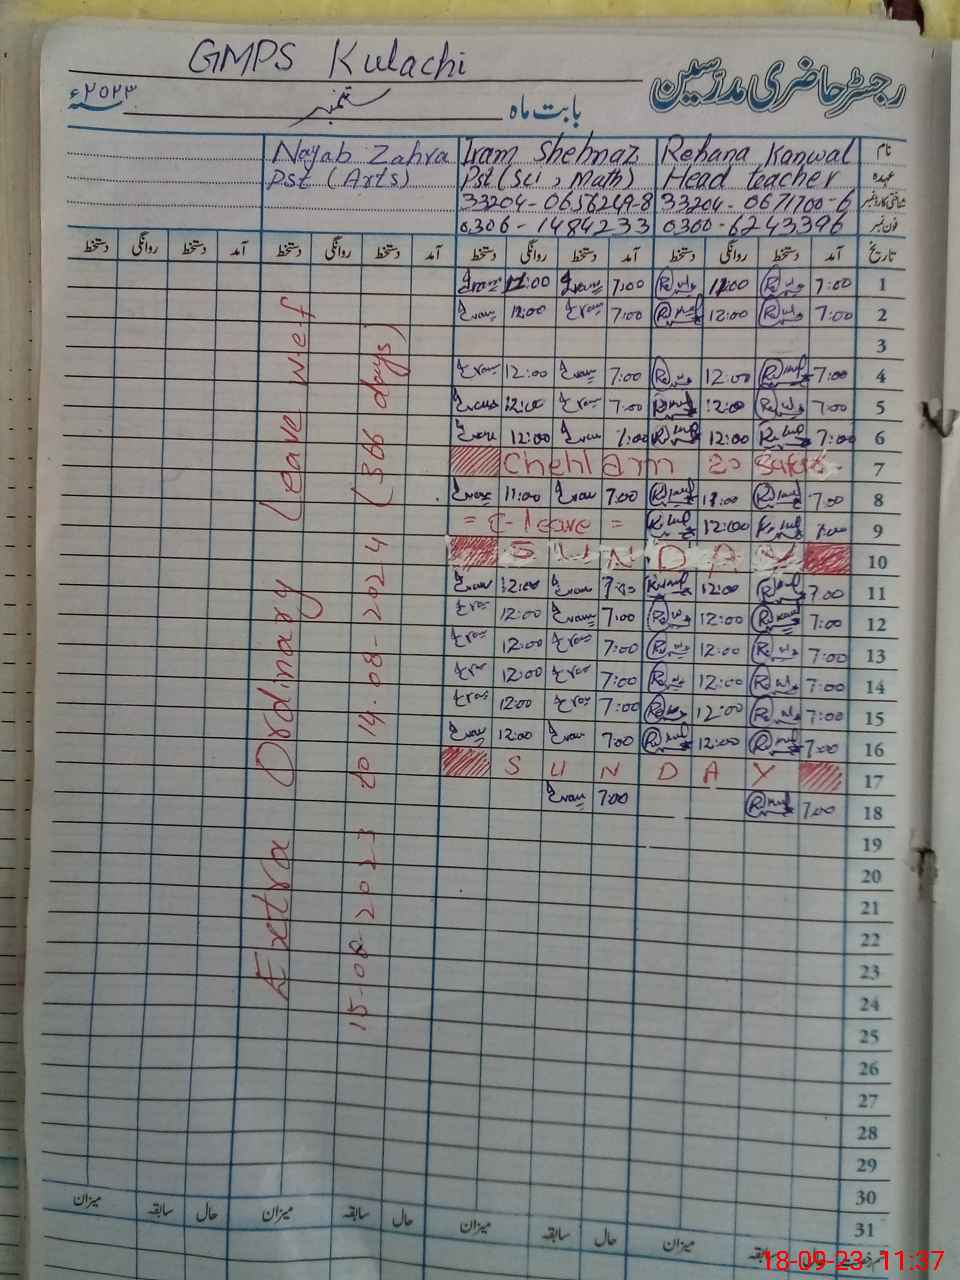 GMPS Kulachi
رجسٹر حاضری مدرسین
بابت ماہ ستمبر ۲۰۲۳ء
نام Rehana Kanwal Iram Shehnaz Nayab Zahra
عہدہ Head teacher Pst (Sci, Math) Pst (Arts)
شناختی کارڈ نمبر 33204-0671700-6 33204-0656249-8
فون نمبر 0300-6243396 0306-1484233
تاریخ آمد دستخط روانگی دستخط آمد دستخط روانگی دستخط آمد دستخط روانگی دستخط آمد دستخط روانگی دستخط
1 7:00 11:00 7:00 Iram 11:00 Iram
2 7:00 12:00 7:00 Iram 12:00 Iram
3
4 7:00 12:00 7:00 Iram 12:00 Iram
5 7:00 12:00 7:00 Iram 12:00 Iram
6 7:00 12:00 7:00 Iram 12:00 Iram
7 Chehlam 20 Safar
8 7:00 11:00 7:00 Iram 11:00 Iram
9 7:00 12:00 = C-leave =
10 SUNDAY
11 7:00 12:00 7:00 Iram 12:00 Iram
12 7:00 12:00 7:00 Iram 12:00 Iram
13 7:00 12:00 7:00 Iram 12:00 Iram
14 7:00 12:00 7:00 Iram 12:00 Iram
15 7:00 12:00 7:00 Iram 12:00 Iram
16 7:00 12:00 7:00 Iram 12:00 Iram
17 SUNDAY
18 7:00 7:00 Iram
19
20
21
22
23
24
25
26
27
28
29
30
31
Extra Ordinary Leave w.e.f
15-08-2023 to 14-08-2024 (366 days)
حال سابقہ میزان حال سابقہ میزان حال سابقہ میزان میزان
18-09-23 11:37